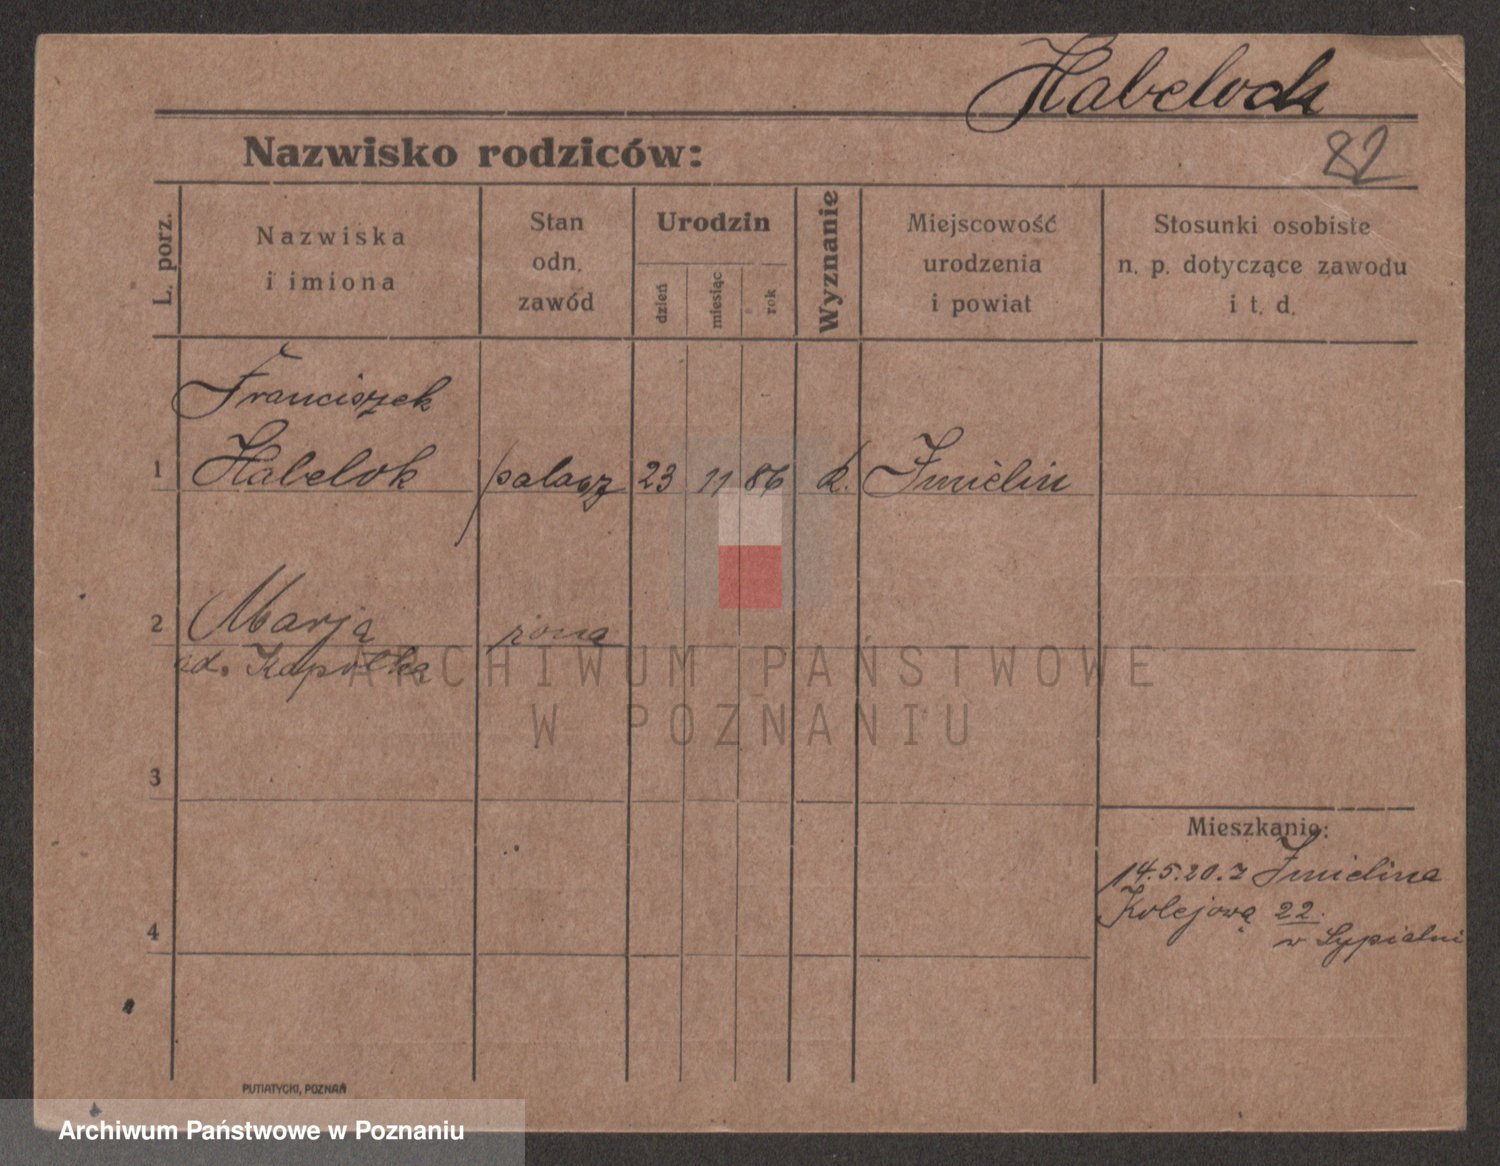 Habelock
82
Nazwisko rodziców:
L. porz.
Nazwiska
i imiona
Stan
odn.
zawód
Urodzin
dzień
miesiąc
rok
Wyznanie
Miejscowość
urodzenia
i powiat
Stosunki osobiste
n. p. dotyczące zawodu
i t. d.
Franciszek
1 Habelok palacz 23 11 86 k. Imielin
2 Marja żona
Kapołka
ARCHIWUM PAŃSTWOWE
W POZNANIU
3
Mieszkanie:
14.5.20. z Imielina
Kolejowa 22.
w Sypialni
4
PUTIATYCKI, POZNAŃ
Archiwum Państwowe w Poznaniu